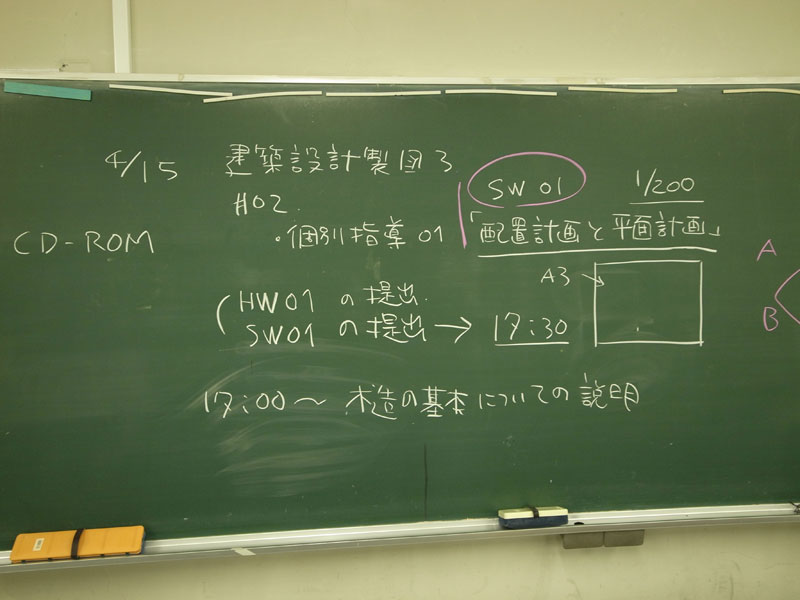 4/15 建築設計製図3
#02
・個別指導01
SW01 1/200
「配置計画と平面計画」
A3
CD-ROM
HW01の提出.
SW01の提出→17:30
17:00～木造の基本についての説明
A
B